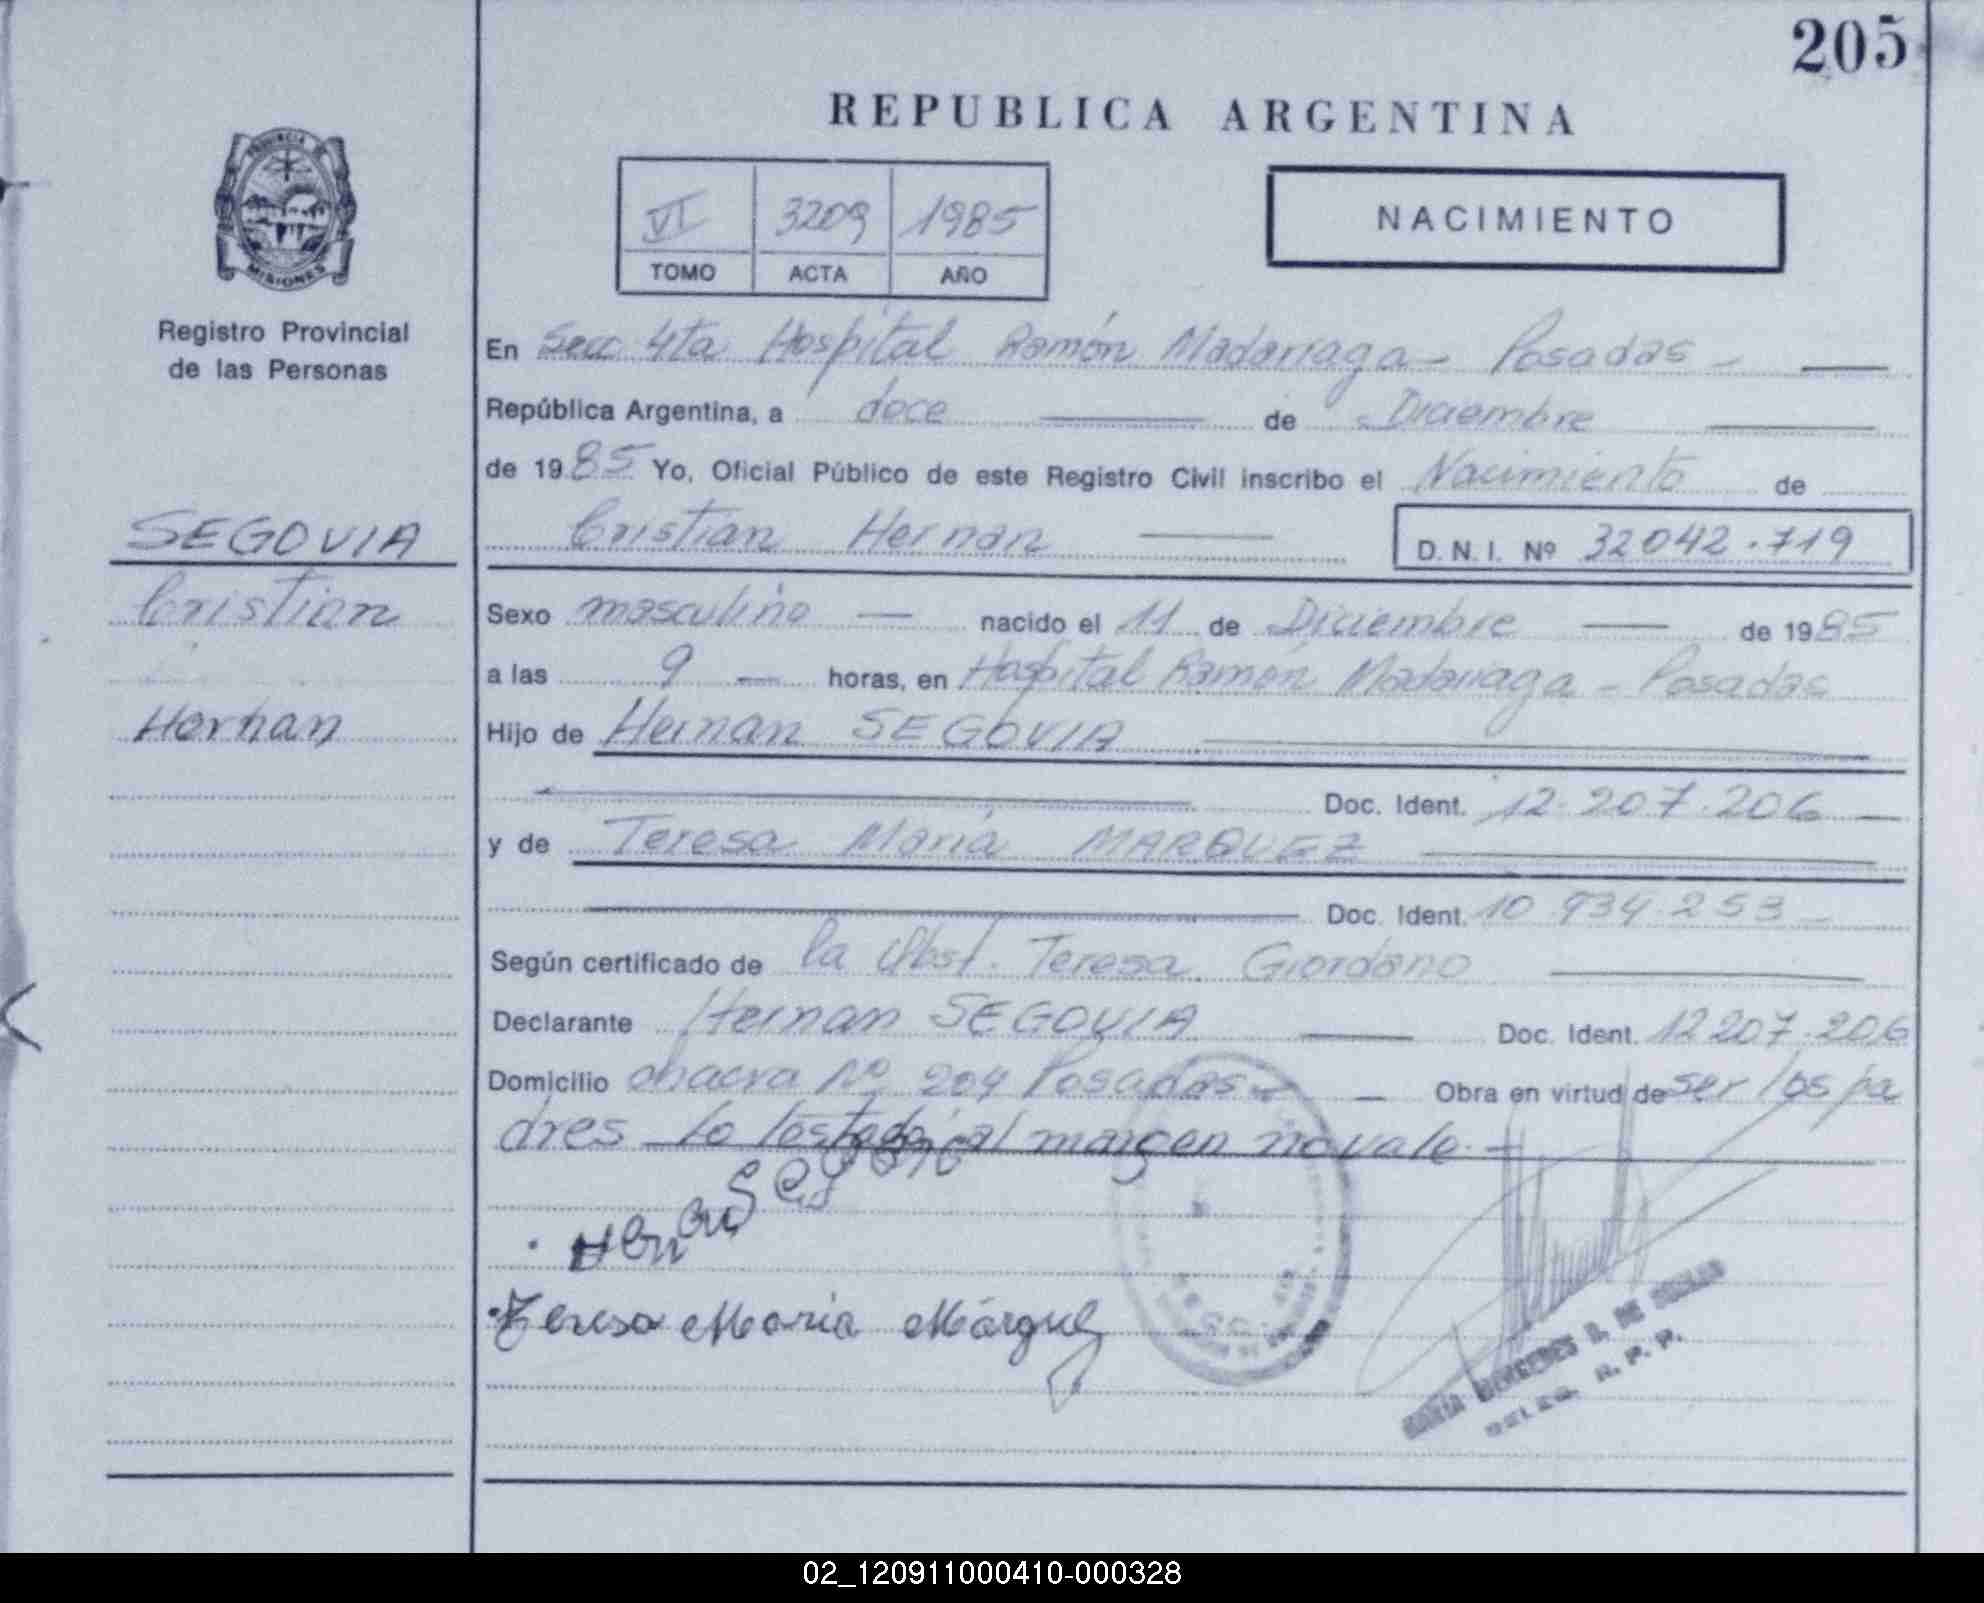 205
REPUBLICA ARGENTINA
PROVINCIA DE
MISIONES
Registro Provincial
de las Personas
VI 3209 1985
TOMO ACTA AÑO
NACIMIENTO
En Secc 4ta Hospital Ramón Madariaga - Posadas -
República Argentina, a doce de Diciembre
de 1985 Yo, Oficial Público de este Registro Civil inscribo el Nacimiento de
Cristian Hernan D.N.I. Nº 32042.719
SEGOVIA
Cristian
Hernan
Sexo masculino nacido el 11 de Diciembre de 1985
a las 9 horas, en Hospital Ramón Madariaga - Posadas
Hijo de Hernan SEGOVIA
Doc. Ident. 12.207.206
y de Teresa María MARQUEZ
Doc. Ident. 10.934.253
Según certificado de la Obst. Teresa Giordano
Declarante Hernan SEGOVIA Doc. Ident. 12207.206
Domicilio chacra Nº 204 Posadas - Obra en virtud de ser los pa
dres lo testado al margen no vale.-
Hernan Segovia
Teresa Maria Márquez
MARÍA MERCEDES R. DE
DELEG. R. P. P.
02_120911000410-000328